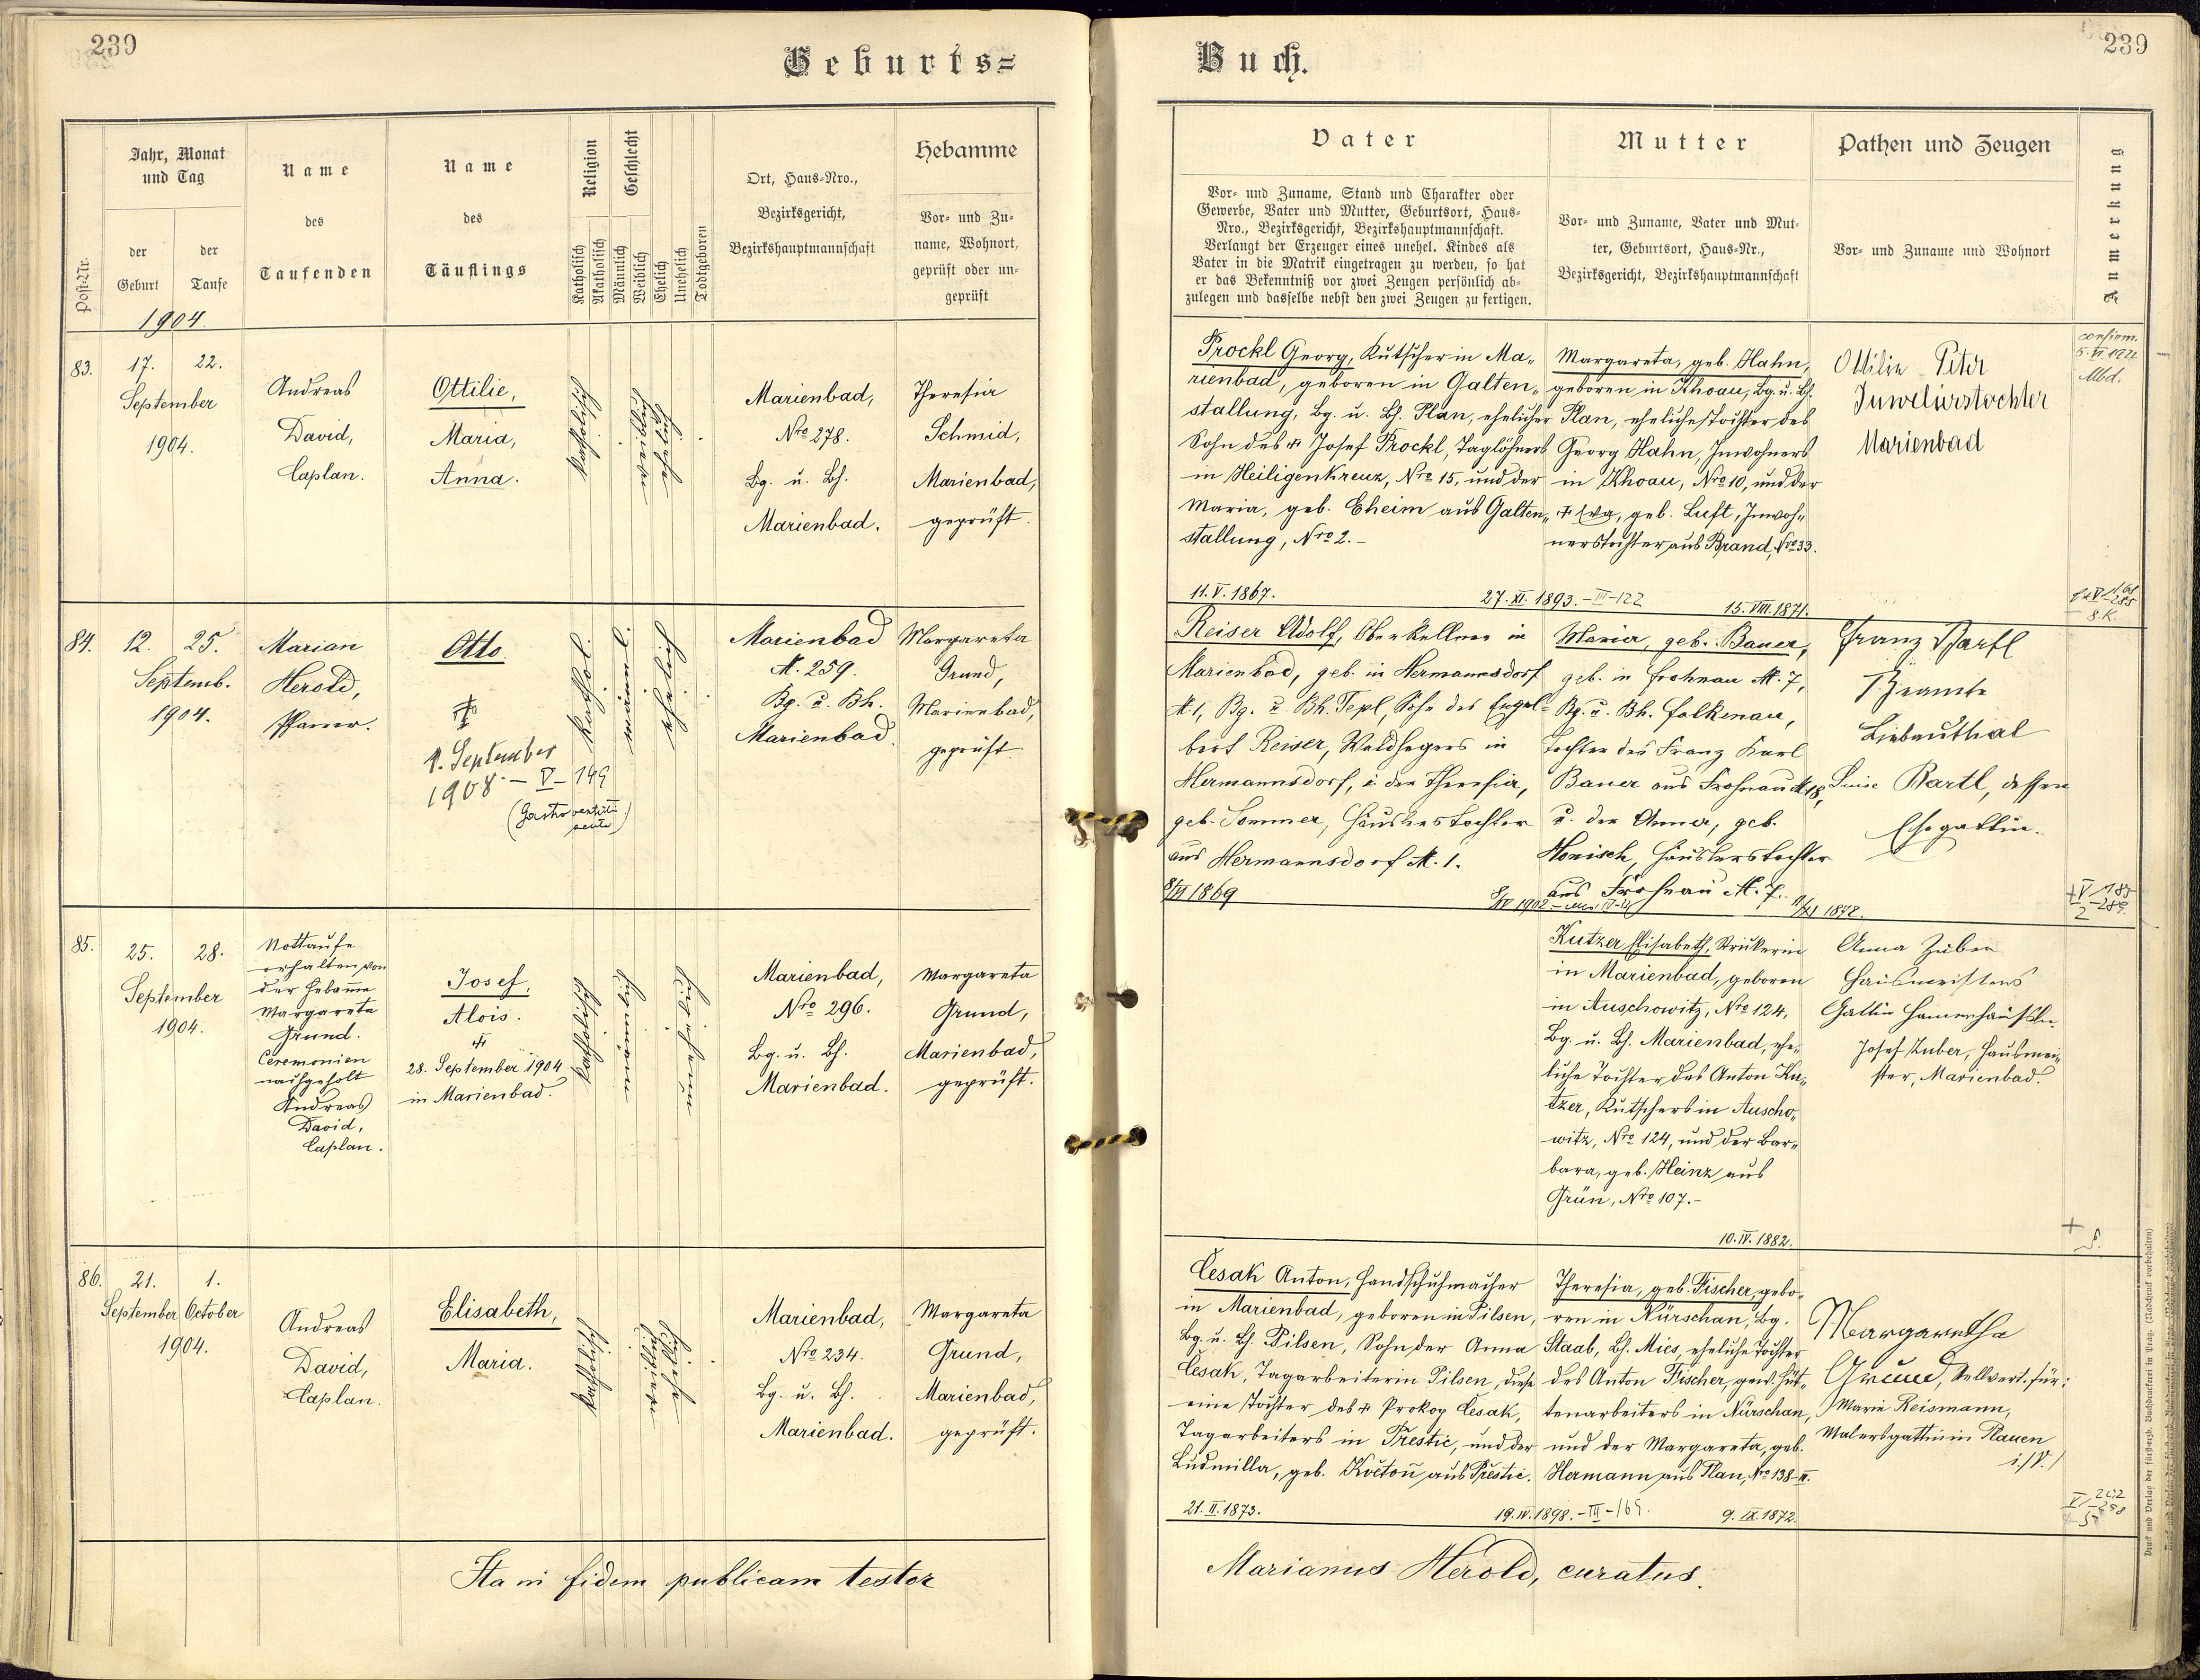 239
Geburts=
Buch.
239
Post-Nr.
Jahr, Monat
und Tag
der
Geburt
der
Taufe
Name
des
Taufenden
Name
des
Täuflings
Religion
Katholisch
Akatholisch
Geschlecht
Männlich
Weiblich
Ehelich
Unehelich
Todtgeboren
Ort, Haus-Nro.,
Bezirksgericht,
Bezirkshauptmannschaft
Hebamme
Vor- und Zu-
name, Wohnort,
geprüft oder un-
geprüft
Vater
Vor- und Zuname, Stand und Charakter oder
Gewerbe, Vater und Mutter, Geburtsort, Haus-
Nro., Bezirksgericht, Bezirkshauptmannschaft.
Verlangt der Erzeuger eines unehel. Kindes als
Vater in die Matrik eingetragen zu werden, so hat
er das Bekenntniß vor zwei Zeugen persönlich ab-
zulegen und dasselbe nebst den zwei Zeugen zu fertigen.
Mutter
Vor- und Zuname, Vater und Mut-
ter, Geburtsort, Haus-Nr.,
Bezirksgericht, Bezirkshauptmannschaft
Pathen und Zeugen
Vor- und Zuname und Wohnort
Anmerkung
1904.
83.
17. 22.
September
1904.
Andreas
David,
Caplan.
Ottilie,
Maria,
Anna.
katholisch
weiblich
ehelich
Marienbad,
Nro 278.
Bg. u. Bh.
Marienbad.
Theresia
Schmid,
Marienbad,
geprüft.
Prockl Georg, Kutscher in Ma„
rienbad, geboren in Galten„
stallung, Bg. u. Bh. Plan, ehelicher
Sohn des † Josef Prockl, Taglöhners
in Heiligenkreuz, Nro 15, und der
Maria, geb. Eheim aus Galten„
stallung, Nro 2.-
11. V. 1867.
27. XI. 1893.-III-122
Margareta, geb. Hahn,
geboren in Khoau, Bg. u. Bh.
Plan, eheliche Tochter des
Georg Hahn, Inwohners
in Khoau, Nro 10, und der
† Eva, geb. Luft, Inwoh„
nerstochter aus Brand, Nro 33.
15. VIII. 1871.
Ottilie Peter
Juwelierstochter
Marienbad
confirm.
Mbd.
84.
12. 25.
Septemb.
1904.
Marian
Herold,
Pfarrer.
Otto
†
1. September
1908 - V - 149
kathol.
männl.
ehelich
Marienbad
N. 259.
Bg. u. Bh.
Marienbad.
Margareta
Grund,
Marienbad,
geprüft.
Reiser Adolf, Oberkellner in
Marienbad, geb. in Hermannsdorf
N. 1, Bg. u Bh. Tepl, Sohn des Engel-
bert Reiser, Waldhegers in
Hermannsdorf, u. der Theresia,
geb. Sommer, Häuslerstochter
aus Hermannsdorf N. 1.
Maria, geb. Bauer,
geb. in Frohnau N. 7,
Bg. u. Bh. Falkenau,
Tochter des Franz Karl
Bauer aus Frohnau N 18,
u. der Anna, geb.
Honisch, Häuslerstochter
aus Frohnau N. 7.
Franz Bartl
Beamte
Liebauthal
Luise Bartl, dessen
Ehegattin.
85.
25. 28.
September
1904.
Nottaufe
erhalten von
der Hebamme
Margareta
Grund.
Ceremonien
nachgeholt
Andreas
David,
Caplan.
Josef,
Alois.
†
28. September 1904
in Marienbad.
katholisch
männlich
unehelich
Marienbad,
Nro 296.
Bg. u. Bh.
Marienbad.
Margareta
Grund,
Marienbad,
geprüft.
Kutzer Elisabeth, Strickerin
in Marienbad, geboren
in Auschowitz, Nro 124,
Bg. u. Bh. Marienbad, ehe„
liche Tochter des Anton Ku„
tzer, Kutschers in Auscho„
witz, Nro 124, und der Bar„
bara, geb. Heinz aus
Grün, Nro 107.-
10. IV. 1882.
Anna Zuber
Hausmeisters
Gattin
Josef Zuber, Hausmei„
ster, Marienbad.
86.
21. 1.
September October
1904.
Andreas
David,
Caplan.
Elisabeth,
Maria.
katholisch
weiblich
ehelich
Marienbad,
Nro 234.
Bg. u. Bh.
Marienbad.
Margareta
Grund,
Marienbad,
geprüft.
Česak Anton, Handschuhmacher
in Marienbad, geboren in Pilsen,
Bg. u. Bh. Pilsen, Sohn der Anna
Česak, Tagarbeiterin Pilsen, diese
eine Tochter des † Prokop Česak,
Tagarbeiters in Přestic, und der
Ludmilla, geb. Kočtoň aus Přestic.
21. II. 1873.
19. IV. 1898.-III-169.
Theresia, geb. Fischer, gebo„
ren in Nürschan, Bg.
Staab, Bh. Mies, eheliche Tochter
des Anton Fischer, gew. Hüt„
tenarbeiters in Nürschan,
und der Margareta, geb.
Hermann aus Plan, Nro 138-II.
9. IX. 1872.
Margaretha
Grund, Stellvert. für:
Marie Reismann,
Malersgattin in Plauen
i./V./
Ita in fidem publicam testor
Marianus Herold, curatus.